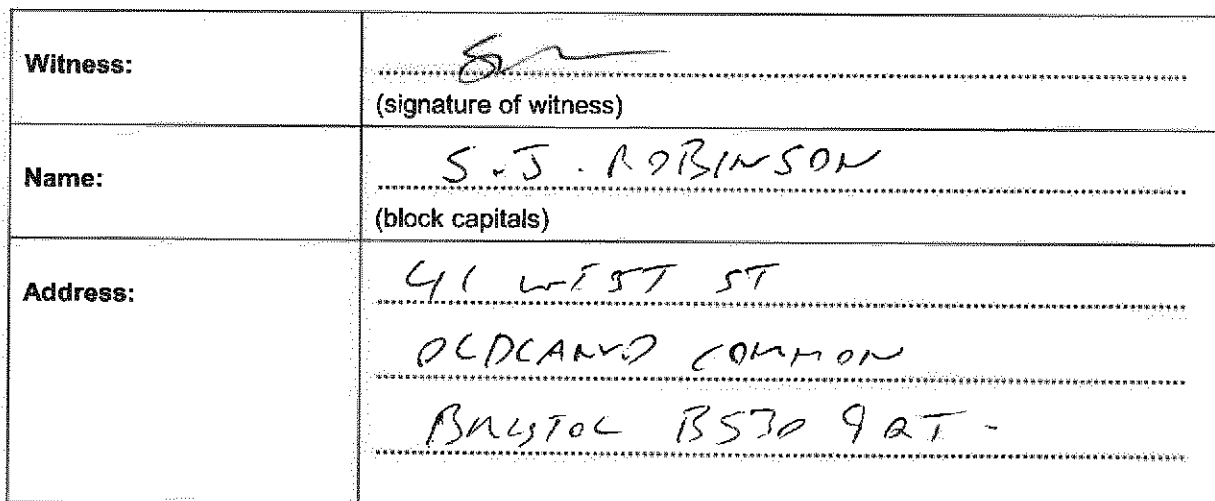 Witness:
(signature of witness)
Name:
S.J. ROBINSON
(block capitals)
Address:
41 WEST ST
OLDLAND COMMON
BRISTOL BS30 9QT